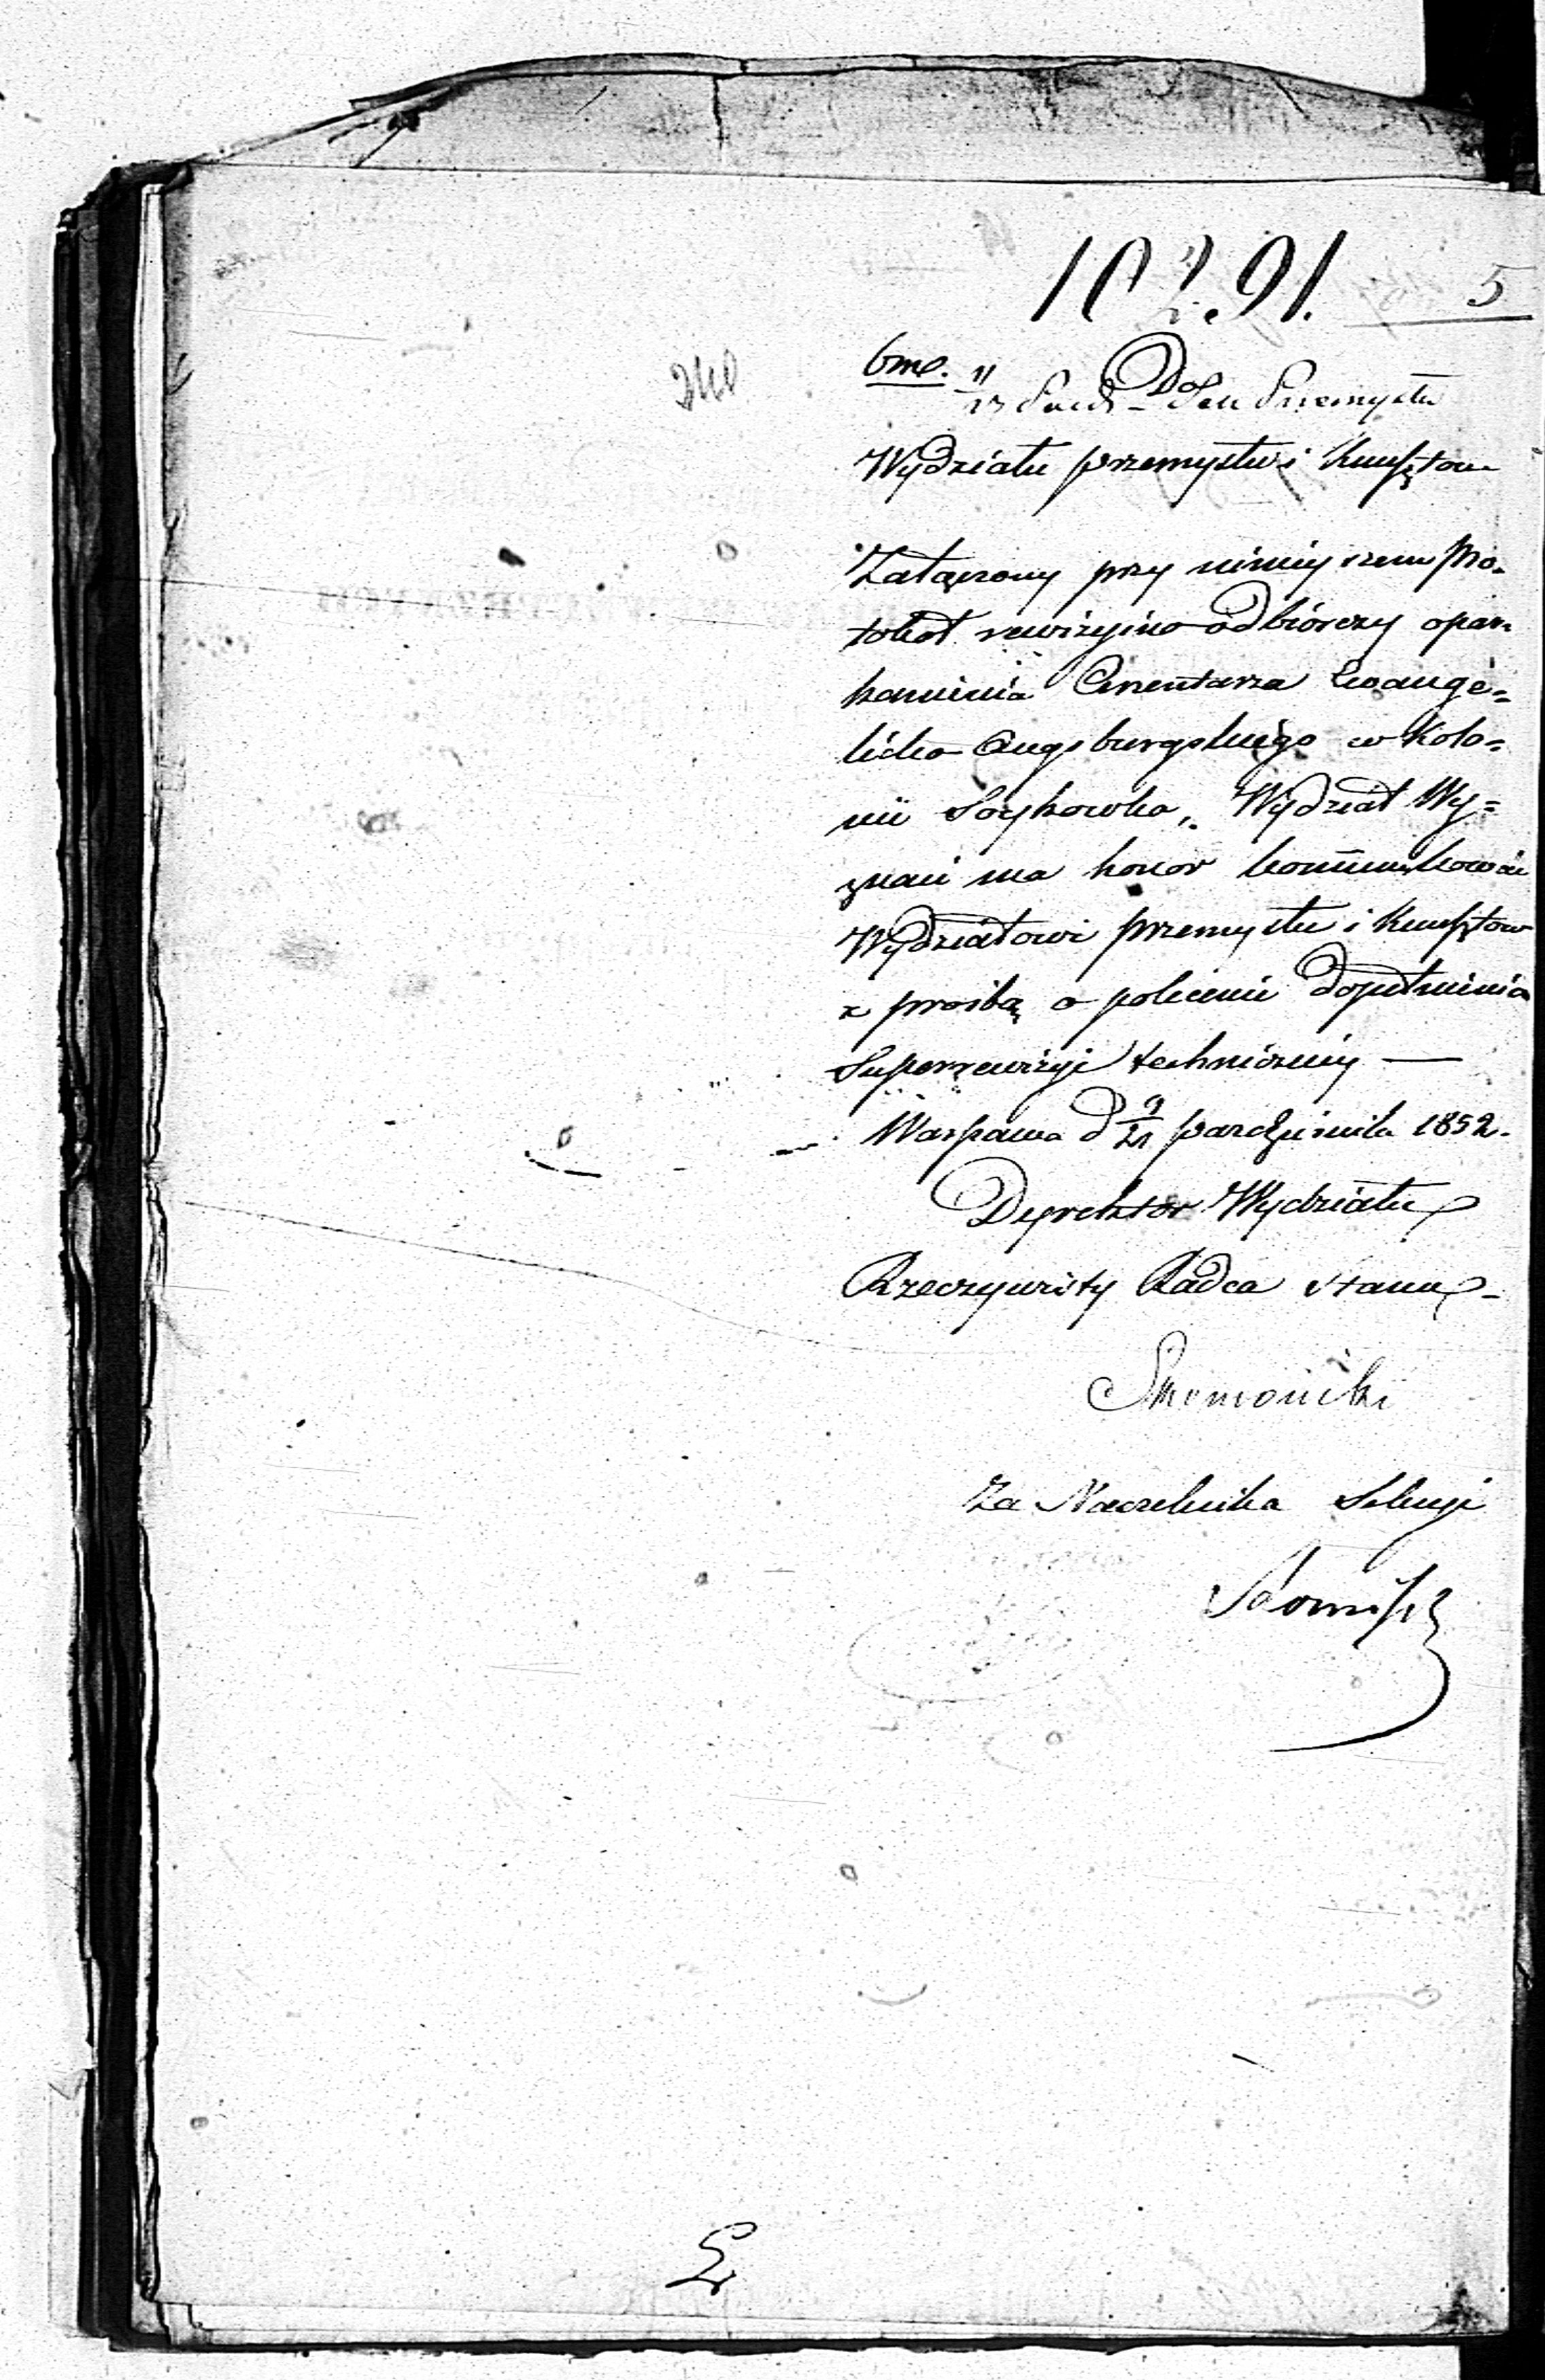 5
Do
Wydziału przemysłu i Kunsztów
Załączony przy niniejszem Pro-
tokół rewizyjno odbiórczy opar-
kanienia Cmentarza Ewange=
licko Augsburgskiego w Kolo=
nii Soykowka, Wydział Wy=
znań ma honor kommunikować
Wydziałowi przemysłu i Kunsztów
z prośbą o polecenie dopełnienia
Superrewizyi techniczney —
Warszawa d 9/21 października 1852.
Dyrektor Wydziału
Rzeczywisty Radca Stanu
Za Naczelnika Sekcyi